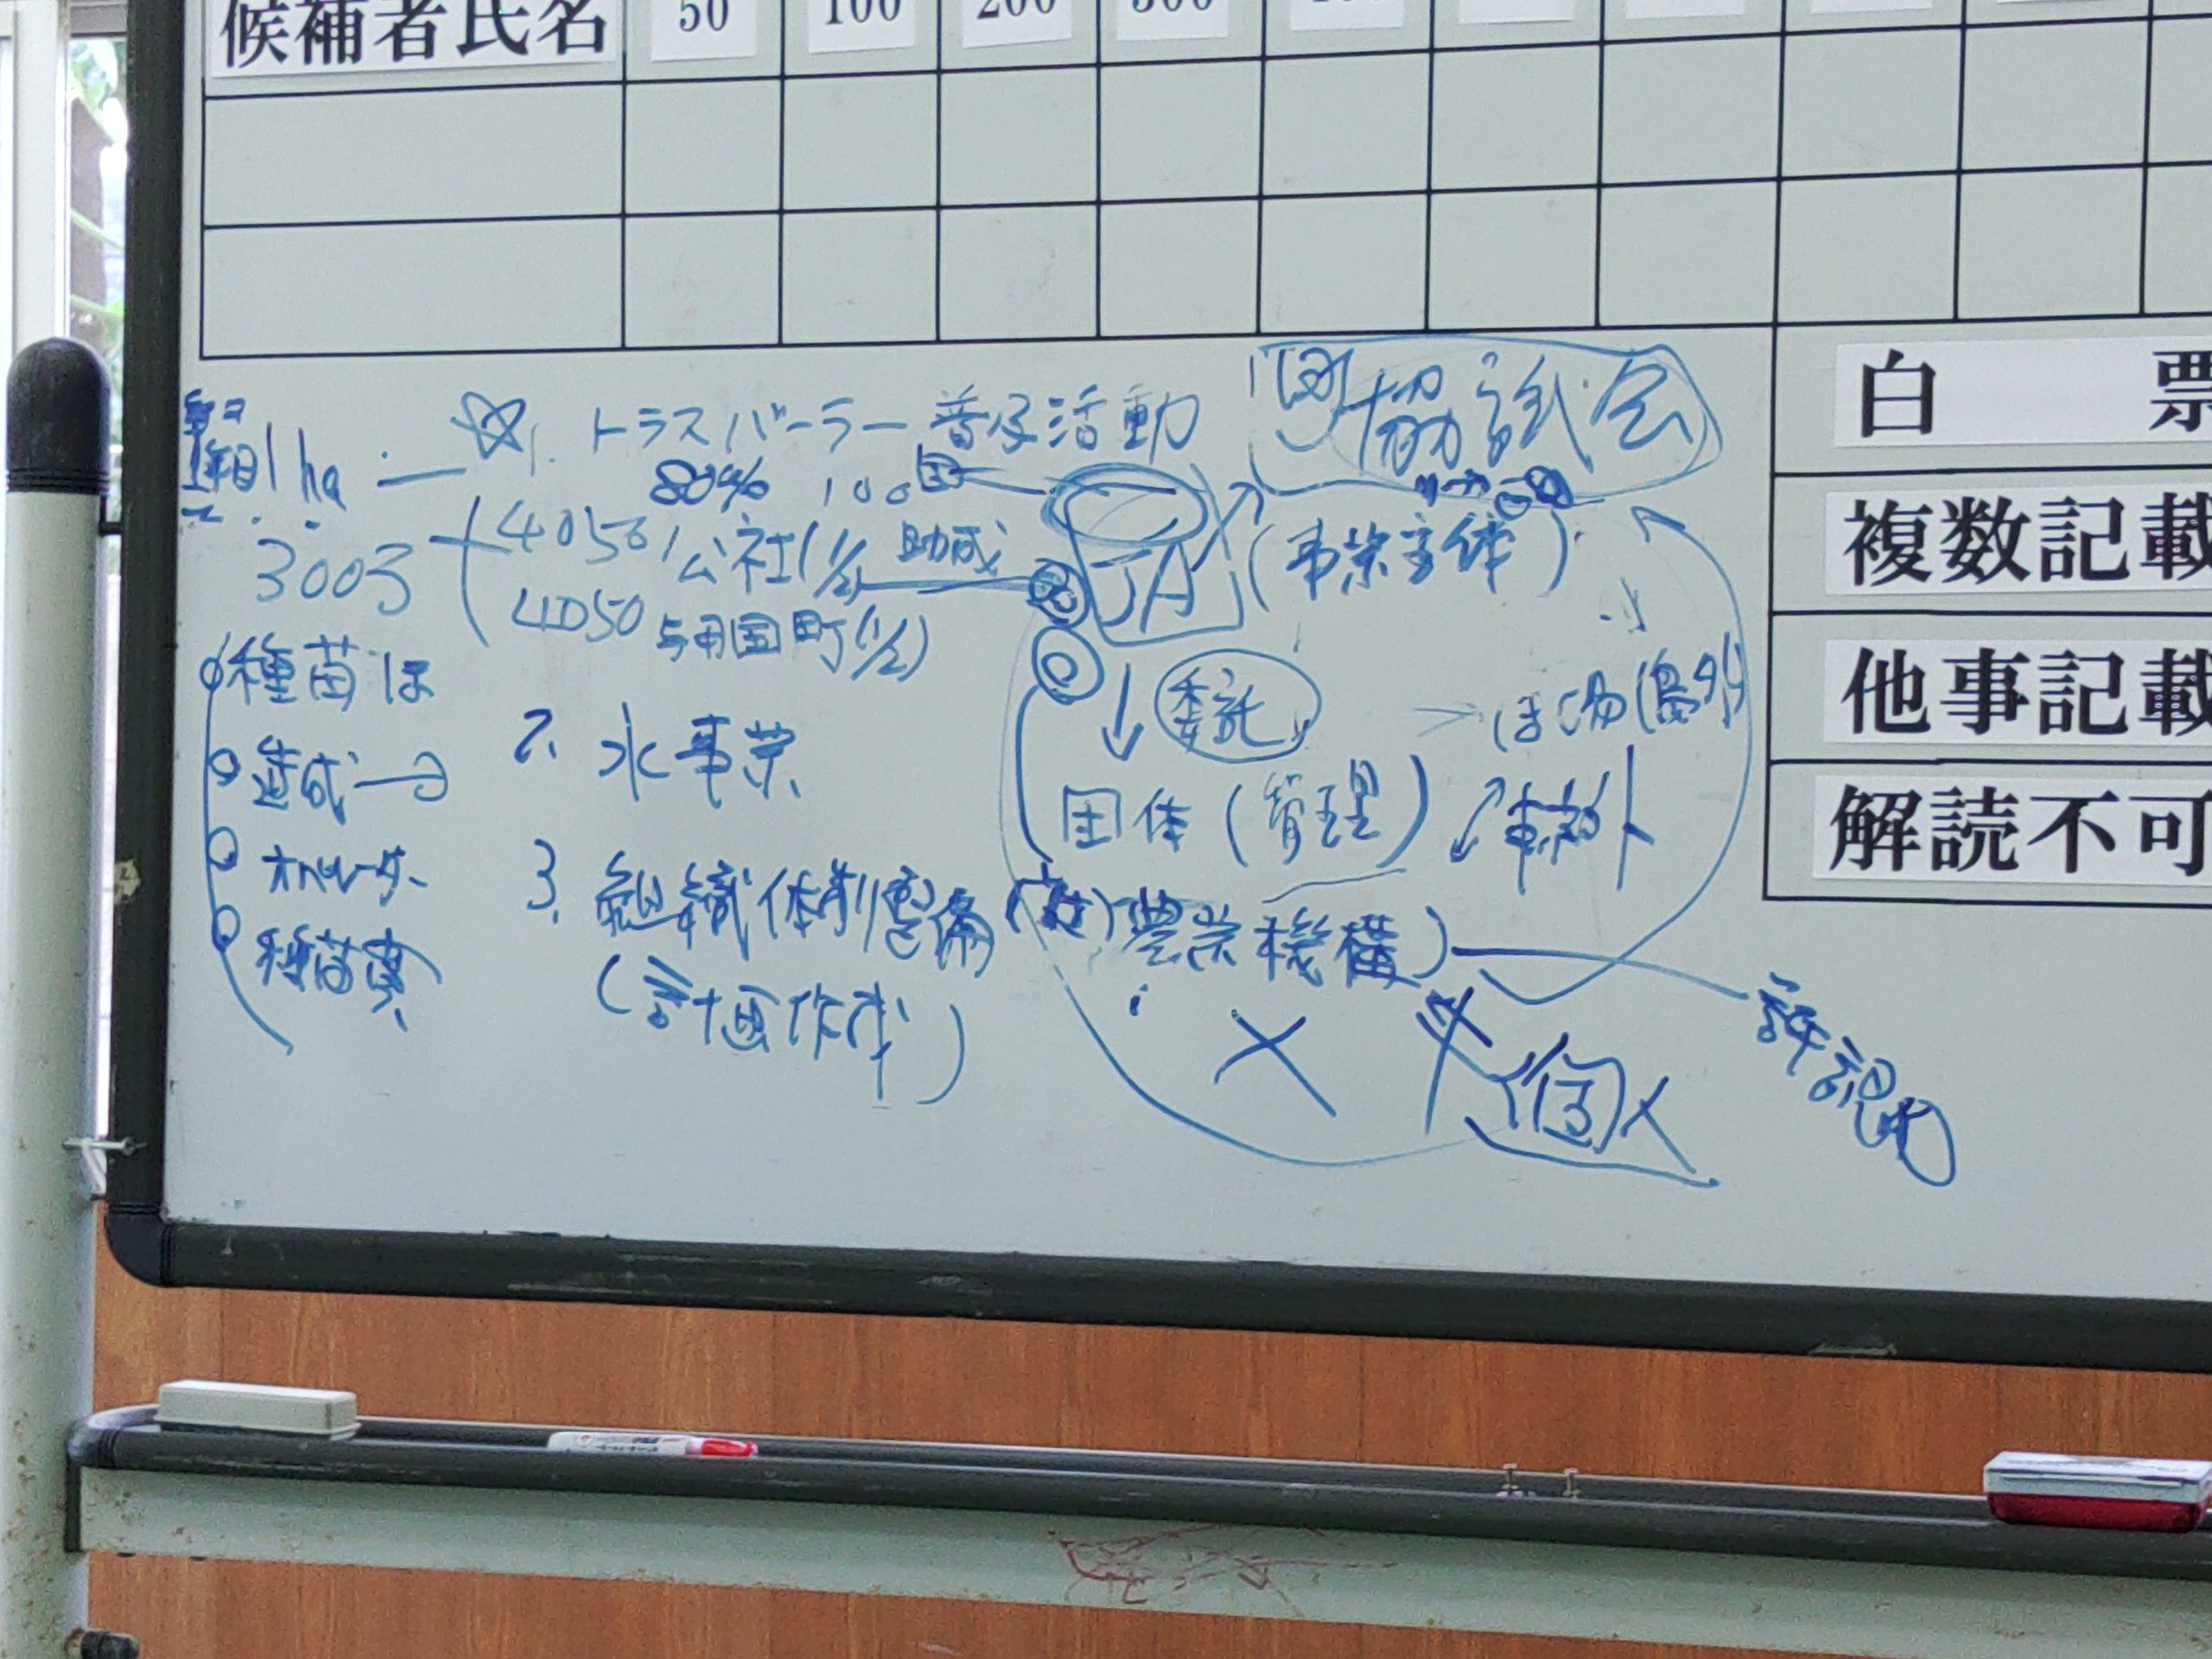 候補者氏名 50 100 200 300
白 票
複数記載
他事記載
解読不可
1. トラスバーラー普及活動
協議会
1年目 1ha
80% 100
300万
4050 公社(1/2) 助成
4050 与那国町(1/2)
JA (事業主体)
種苗ほ
造成
オペレータ
種苗費
2. 水事業
委託
ほ場
団体 (管理)
3. 組織体制整備
農業機構)
(計画作成)
個人
許認可